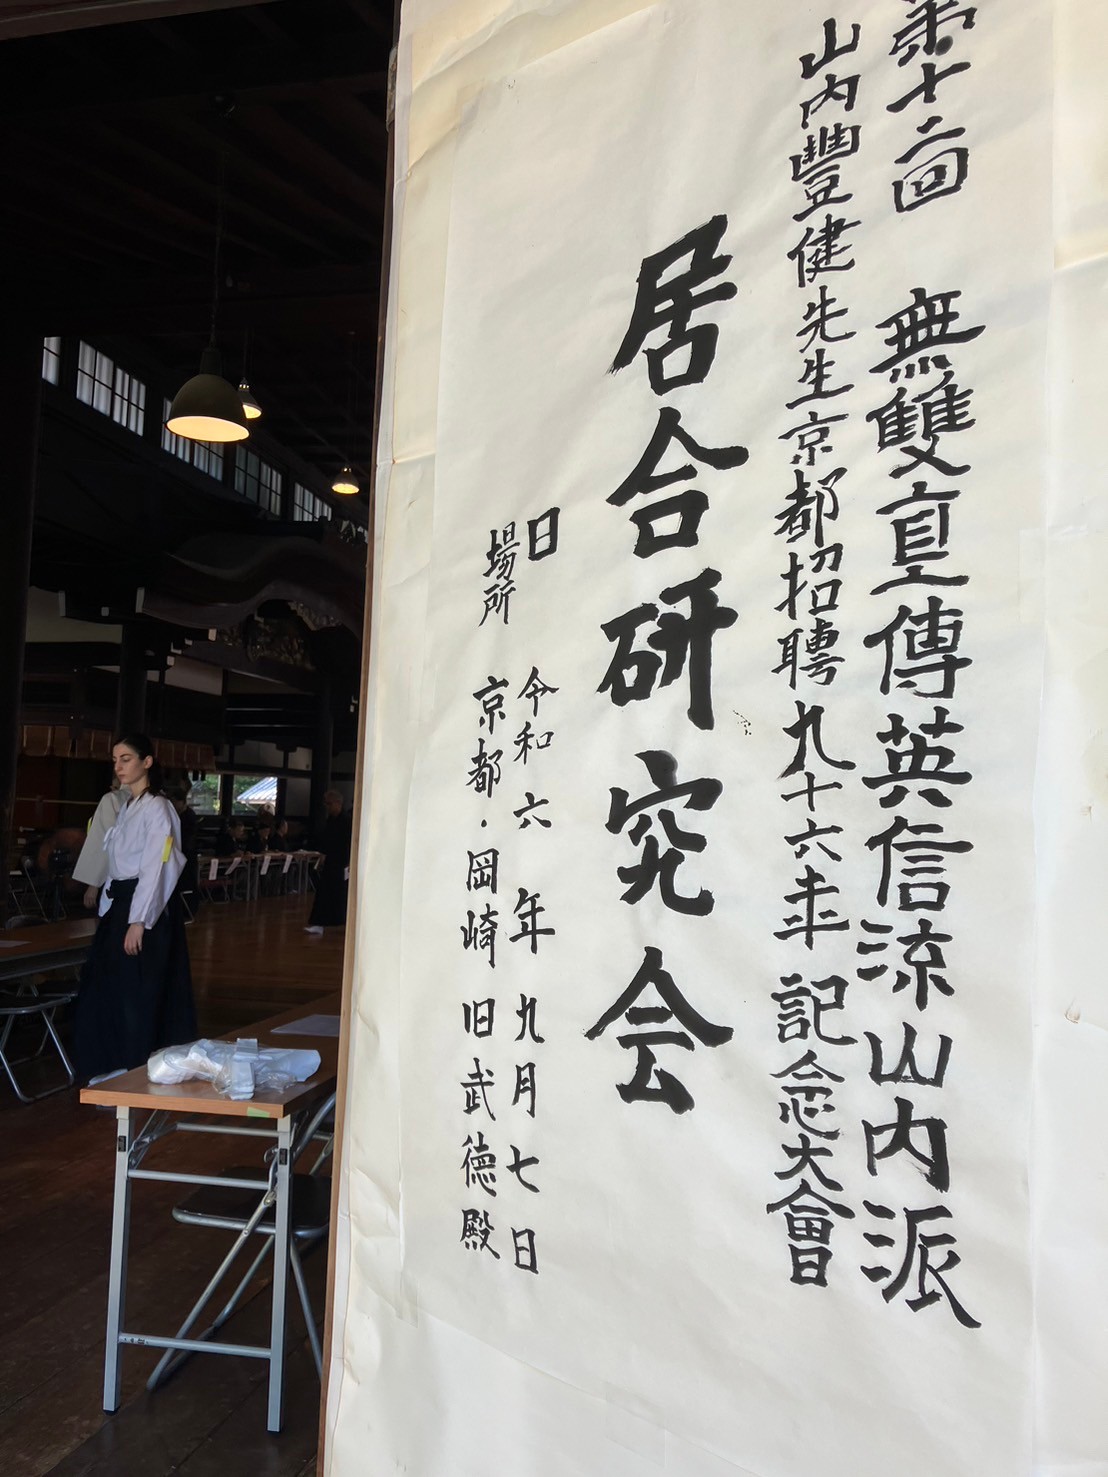 第十二回 無雙直傳英信流山内派
山内豐健先生京都招聘九十六年記念大會
居合研究会
日 令和六年九月七日
場所 京都・岡崎 旧武徳殿